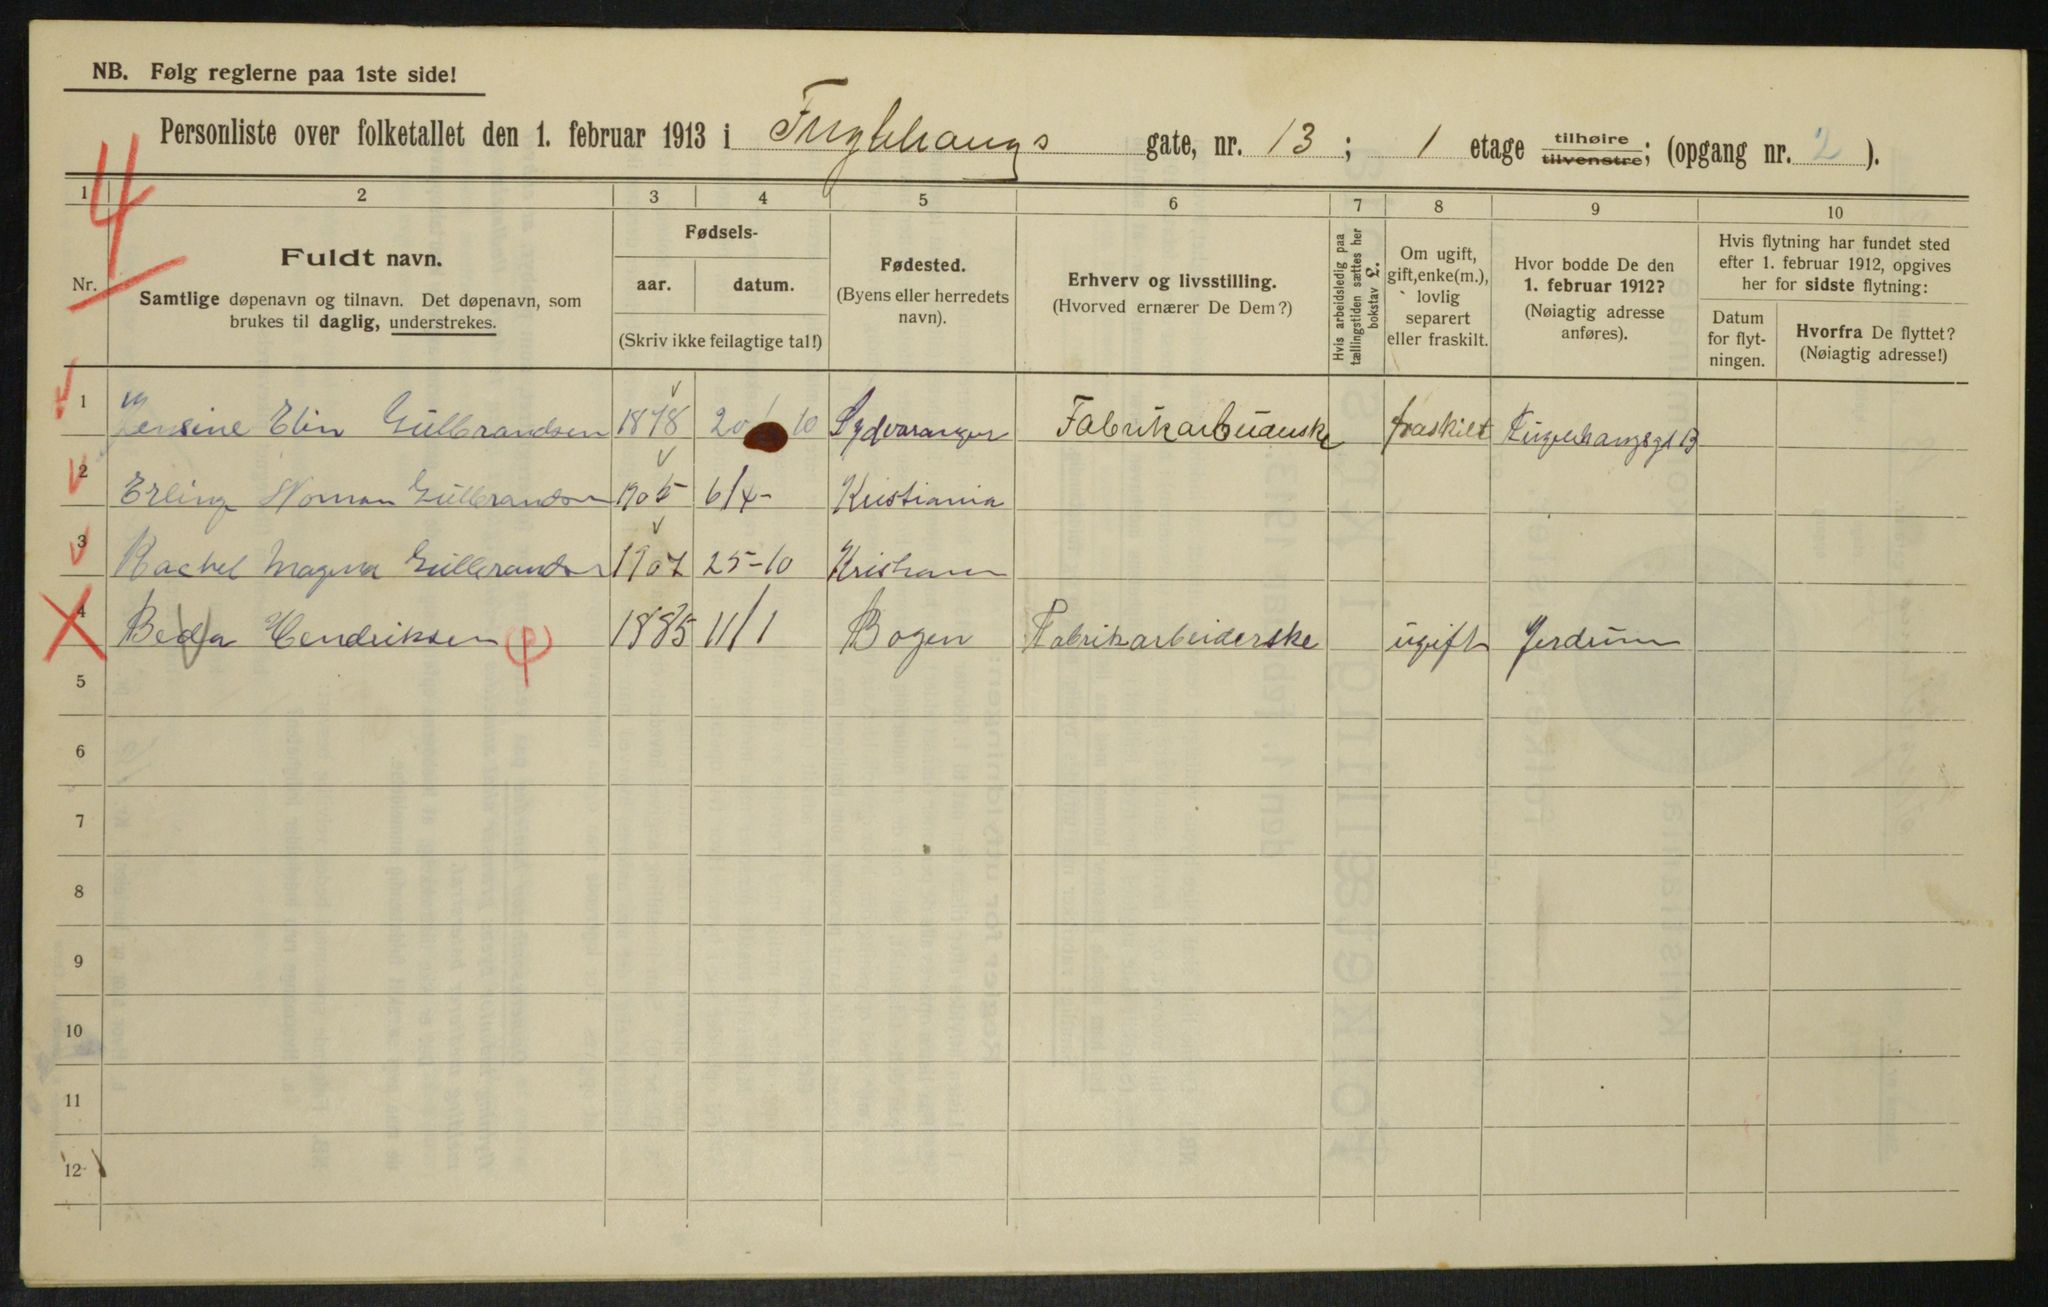 NB. Følg reglerne paa 1ste side!
Personliste over folketallet den 1. februar 1913 i Fuglehaugs gate, nr. 13; 1 etage tilhøire tilvenstre; (opgang nr. 2).
4
1 2 3 4 5 6 7 8 9 10
Nr.
Fuldt navn.
Samtlige døpenavn og tilnavn. Det døpenavn, som
brukes til daglig, understrekes.
Fødsels-
aar. datum.
(Skriv ikke feilagtige tal!)
Fødested.
(Byens eller herredets
navn).
Erhverv og livsstilling.
(Hvorved ernærer De Dem?)
Hvis arbeidsledig paa
tællingstiden sættes her
bokstav L.
Om ugift,
gift, enke(m.),
lovlig
separert
eller fraskilt.
Hvor bodde De den
1. februar 1912?
(Nøiagtig adresse
anføres).
Hvis flytning har fundet sted
efter 1. februar 1912, opgives
her for sidste flytning:
Datum
for flyt-
ningen.
Hvorfra De flyttet?
(Nøiagtig adresse!)
1 Jensine Elin Gullbrandsen 1878 20/10 Sydvaranger Fabrikarbeiderske fraskilt Fuglehaugsgt 13
2 Erling Norman Gullbrandsen 1905 6/4- Kristiania
3 Rachel Magna Gullbrandsen 1907 25-10 Kristiania
4 Beda Hendriksen 1885 11/1 Bogen Fabrikarbeiderske ugift Jerdrum
5
6
7
8
9
10
11
12